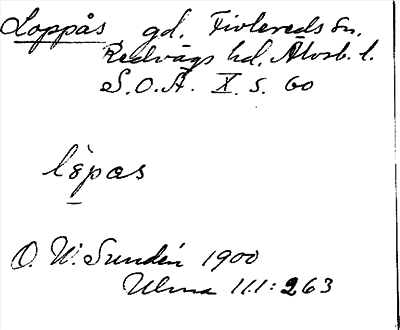 Loppås, gd. Fivlereds sn.
Redvägs hd. Älvsb. l.
S.O.Ä. X. s. 60
lèpas
O. W. Sundén 1900
Ulma 111:263